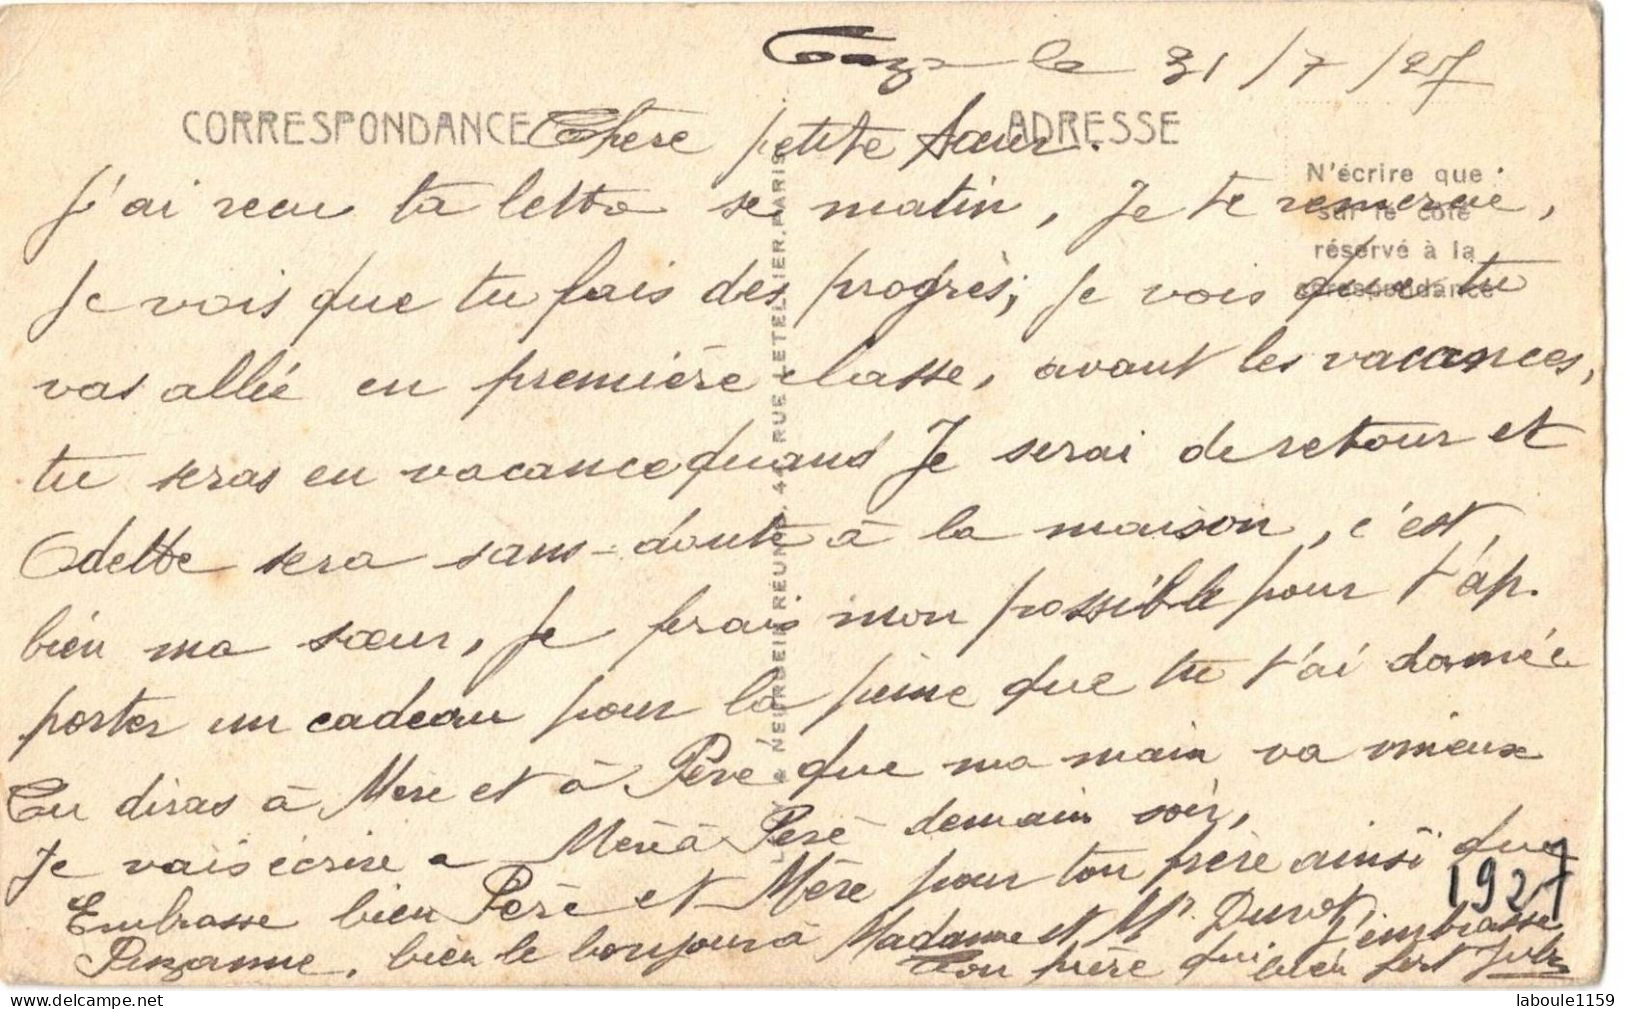 Taza le 31/7/27
CORRESPONDANCE
ADRESSE
Chère petite Sœur.
N'écrire que
sur le côté
réservé à la
correspondance
J'ai recu ta lettre se matin, Je te remercie,
Je vois que tu fais des progrès, je vois que tu
vas allée en première classe, avant les vacances,
tu seras en vacance quand Je serai de retour et
Odette sera sans-doute à la maison, c'est,
bien ma sœur, Je ferais mon possible pour t'ap.
porter un cadeau pour la peine que tu t'ai donnée
Tu diras à Mère et à Père que ma main va mieux
Je vais écrire a Mère à Père demain soir,
Embrasse bien Père et Mère pour ton frère ainsi que
Suzanne, bien le bonjour à Madame et Mr. Durot,
Ton frère qui t'embrasse
bien fort Jules
1927
NEURDEIN RÉUNIS, 44 RUE LETELLIER, PARIS
laboule1159